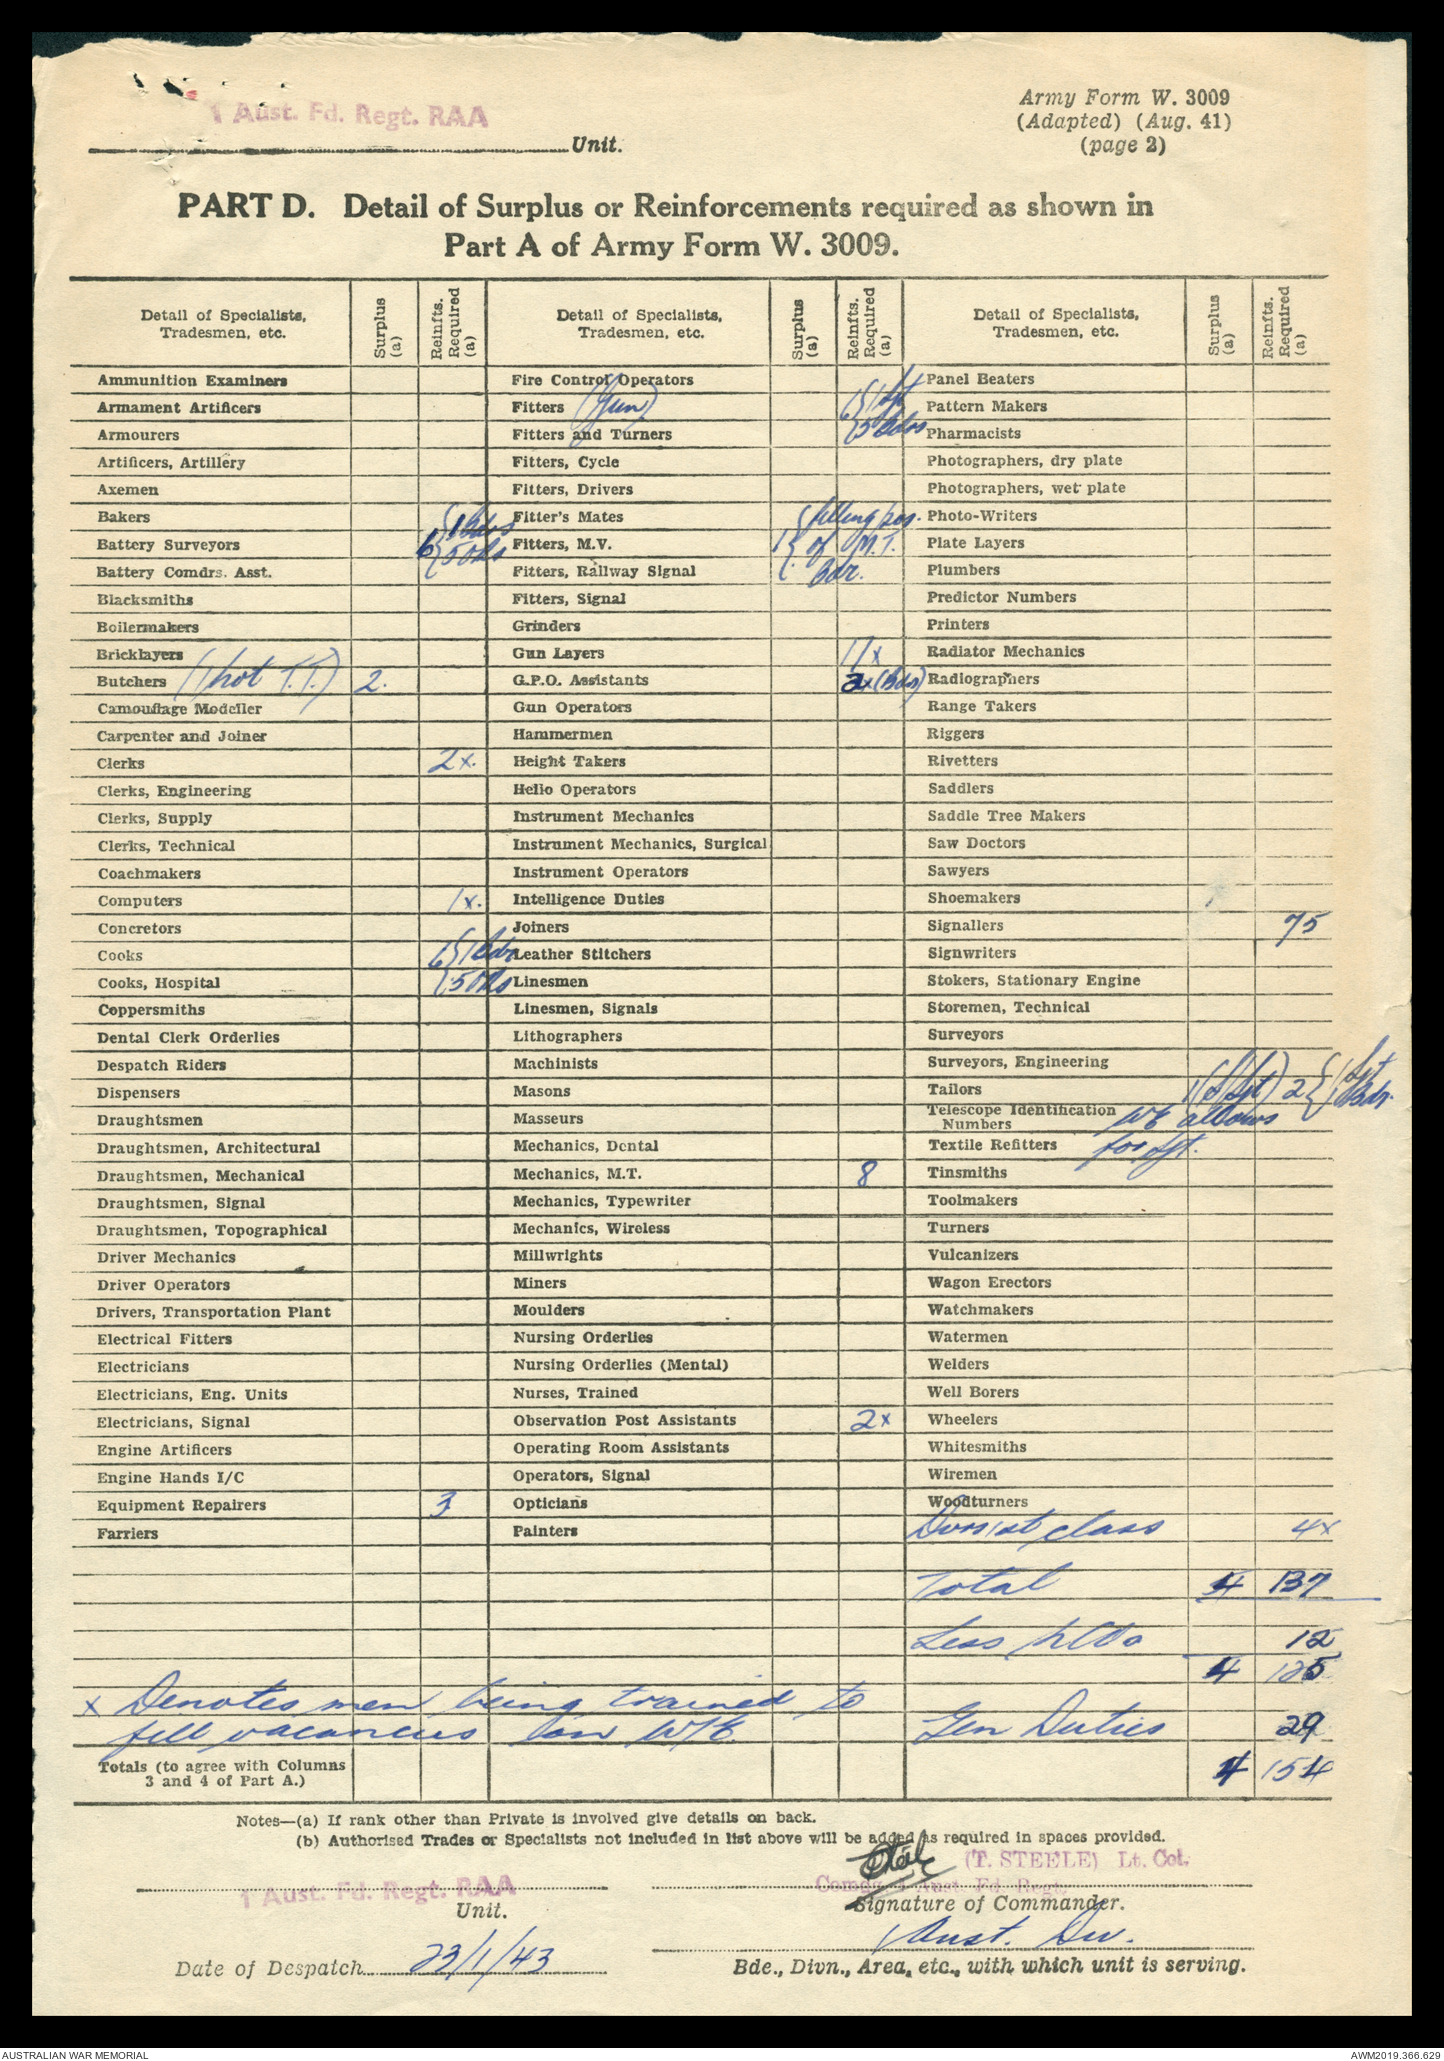 1 Aust. Fd. Regt. RAA
Unit.
Army Form W. 3009
(Adapted) (Aug. 41)
(page 2)
PART D. Detail of Surplus or Reinforcements required as shown in
Part A of Army Form W. 3009.
Detail of Specialists, Tradesmen, etc. Surplus (a) Reinfts. Required (a) Detail of Specialists, Tradesmen, etc. Surplus (a) Reinfts. Required (a) Detail of Specialists, Tradesmen, etc. Surplus (a) Reinfts. Required (a)
Ammunition Examiners
Armament Artificers
Armourers
Artificers, Artillery
Axemen
Bakers
Battery Surveyors 6 { 1 Bdrs
5 ORs
Battery Comdrs. Asst.
Blacksmiths
Boilermakers
Bricklayers
Butchers (1 not T.T.) 2.
Camouflage Modeller
Carpenter and Joiner
Clerks 2x.
Clerks, Engineering
Clerks, Supply
Clerks, Technical
Coachmakers
Computers 1x.
Concretors
Cooks 6 { 1 Bdr
5 ORs
Cooks, Hospital
Coppersmiths
Dental Clerk Orderlies
Despatch Riders
Dispensers
Draughtsmen
Draughtsmen, Architectural
Draughtsmen, Mechanical
Draughtsmen, Signal
Draughtsmen, Topographical
Driver Mechanics
Driver Operators
Drivers, Transportation Plant
Electrical Fitters
Electricians
Electricians, Eng. Units
Electricians, Signal
Engine Artificers
Engine Hands I/C
Equipment Repairers 3
Farriers
Fire Control Operators
Fitters (Gun) 6 { 1 Sgt
5 Bdrs
Fitters and Turners
Fitters, Cycle
Fitters, Drivers
Fitter's Mates
Fitters, M.V. 1 { filling pos.
of M.T.
Bdr.
Fitters, Railway Signal
Fitters, Signal
Grinders
Gun Layers 11x
G.P.O. Assistants 2x (Bdr)
Gun Operators
Hammermen
Height Takers
Helio Operators
Instrument Mechanics
Instrument Mechanics, Surgical
Instrument Operators
Intelligence Duties
Joiners
Leather Stitchers
Linesmen
Linesmen, Signals
Lithographers
Machinists
Masons
Masseurs
Mechanics, Dental
Mechanics, M.T. 8
Mechanics, Typewriter
Mechanics, Wireless
Millwrights
Miners
Moulders
Nursing Orderlies
Nursing Orderlies (Mental)
Nurses, Trained
Observation Post Assistants 2x
Operating Room Assistants
Operators, Signal
Opticians
Painters
Panel Beaters
Pattern Makers
Pharmacists
Photographers, dry plate
Photographers, wet plate
Photo-Writers
Plate Layers
Plumbers
Predictor Numbers
Printers
Radiator Mechanics
Radiographers
Range Takers
Riggers
Rivetters
Saddlers
Saddle Tree Makers
Saw Doctors
Sawyers
Shoemakers
Signallers 75
Signwriters
Stokers, Stationary Engine
Storemen, Technical
Surveyors
Surveyors, Engineering
Tailors 1 (S/Sgt) 2 { 1 Sgt
1 Bdr.
Telescope Identification
Numbers WE allows
Textile Refitters for Sgt.
Tinsmiths
Toolmakers
Turners
Vulcanizers
Wagon Erectors
Watchmakers
Watermen
Welders
Well Borers
Wheelers
Whitesmiths
Wiremen
Woodturners
class 4x
Total 4 137
Less 12
4 125
Gen Duties 29
4 154
x Denotes men being trained to
fill vacancies on W/E.
Totals (to agree with Columns
3 and 4 of Part A.)
Notes—(a) If rank other than Private is involved give details on back.
(b) Authorised Trades or Specialists not included in list above will be added as required in spaces provided.
(T. STEELE) Lt. Col.
1 Aust. Fd. Regt. RAA
Comdg. 1 Aust. Fd. Regt.
Unit.
Signature of Commander.
1 Aust. Div.
Date of Despatch 23/1/43
Bde., Divn., Area, etc., with which unit is serving.
AUSTRALIAN WAR MEMORIAL
AWM2019.366.629